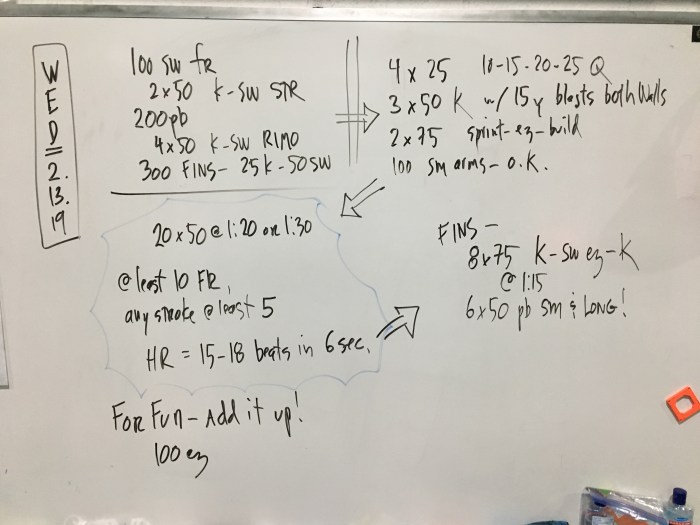 WED 2.13.19
100 SW fR
2x50 K-SW STR
200 pb
4x50 K-SW RIMO
300 FINS- 25K-50SW
4 x 25 10-15-20-25 Q
3 x 50 K w/ 15y blasts both Walls
2x75 sprint-ez-build
100 sm arms-O.K.
20x50 @ 1:20 or 1:30
@ least 10 FR,
any stroke @ least 5
HR = 15-18 beats in 6 sec.
FINS-
8x75 K-SW ez-K
@ 1:15
6x50 pb sm & LONG!
FOR FUN-Add it up!
100 ez